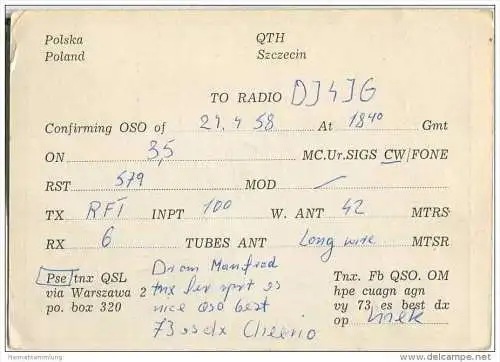 Polska QTH
Poland Szczecin
TO RADIO DJ4JG
Confirming OSO of 29.4 58 At 1840 Gmt
ON 3,5 MC.Ur.SIGS CW/FONE
RST 579 MOD —
TX RFT INPT 100 W. ANT 42 MTRS
RX 6 TUBES ANT Long wire MTSR
Pse tnx QSL
via Warszawa 2
po. box 320
Drom Manfred
tnx fer rprt es
nice QSO best
73 es dx Cheerio
Tnx. Fb QSO. OM
hpe cuagn agn
vy 73 es best dx
op